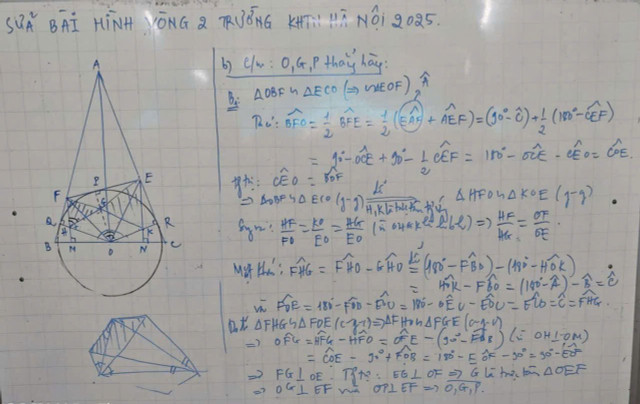 SỬA BÀI HÌNH VÒNG 2 TRƯỜNG KHTN HÀ NỘI 2025.
b) C/m: O, G, P thẳng hàng:
B₁: ΔOBF ∽ ΔECO (⇒ ∽ ΔEOF)
Thứ: BFO = 1/2 BFE = 1/2 (EAF + AEF) = (90° - C) + 1/2 (180° - CEF)
= 90° - OCE + 90° - 1/2 CEF = 180° - OCE - CEO = COE.
Tg tự: CEO = BOF
⇒ ΔOBF ∽ ΔECO (g-g) ΔHFO ∽ ΔKOE (g-g)
Suy ra: HF/FO = KO/EO = HG/EO (vì OHGK là hbh) ⇒ HF/HG = OF/OE.
Mặt khác: FHG = FHO - GHO = (180° - FBO) - (180° - HOK)
= HOK - FBO = (180° - A) - B = C
mà FOE = 180° - FOB - EOC = 180° - OEC - EOC = ECO = C = FHG.
Do đó ΔFHG ∽ ΔFOE (c-g-c) ⇒ ΔFHO ∽ ΔFGE (c-g-c)
⇒ OFG = HFG - HFO = OFE - (90° - FOB) (vì OH ⊥ OM)
= COE - 90° + FOB = 180° - EOF - 90° = 90° - EOF
⇒ FG ⊥ OE. Tg tự: EG ⊥ OF ⇒ G là trực tâm ΔOEF
⇒ OG ⊥ EF mà OP ⊥ EF ⇒ O, G, P.
A
F
P
E
G
Q
R
H
K
B
N
O
N
C